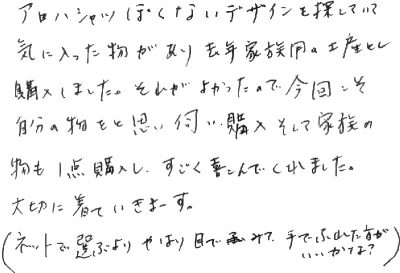 アロハシャツぽくないデザインを探していて
気に入った物があり去年家族用のお土産とし
購入しました。それがよかったので今回こそ
自分の物をと思い伺い購入そして家族の
物も1点購入し、すごく喜こんでくれました。
大切に着ていきまーす。
(ネットで選ぶよりやはり目でみて、手でふれた方が
いいかな?)